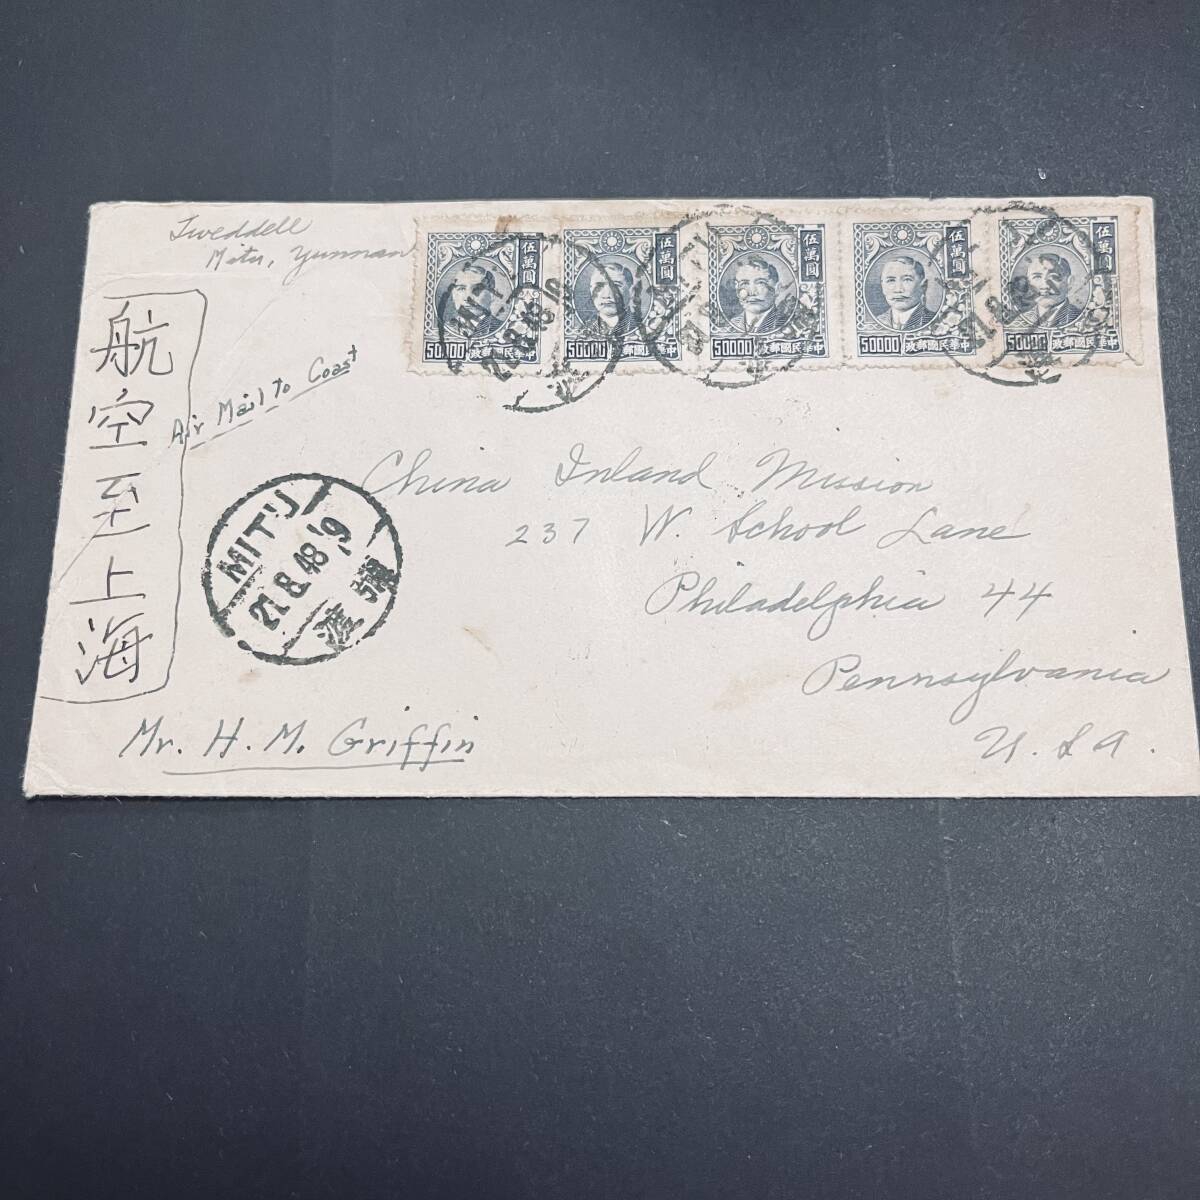 Tweddell
Mitu, Yunnan
航空至上海
Air Mail to Coast
伍萬圓
50000
中華民國郵政
伍萬圓
50000
中華民國郵政
伍萬圓
50000
中華民國郵政
伍萬圓
50000
中華民國郵政
伍萬圓
50000
中華民國郵政
MIT'U
21.8.48
渡
MIT'U
21.8.48.19
彌渡
China Inland Mission
237 W. School Lane
Philadelphia 44
Pennsylvania
U.S.A.
Mr. H. M. Griffin